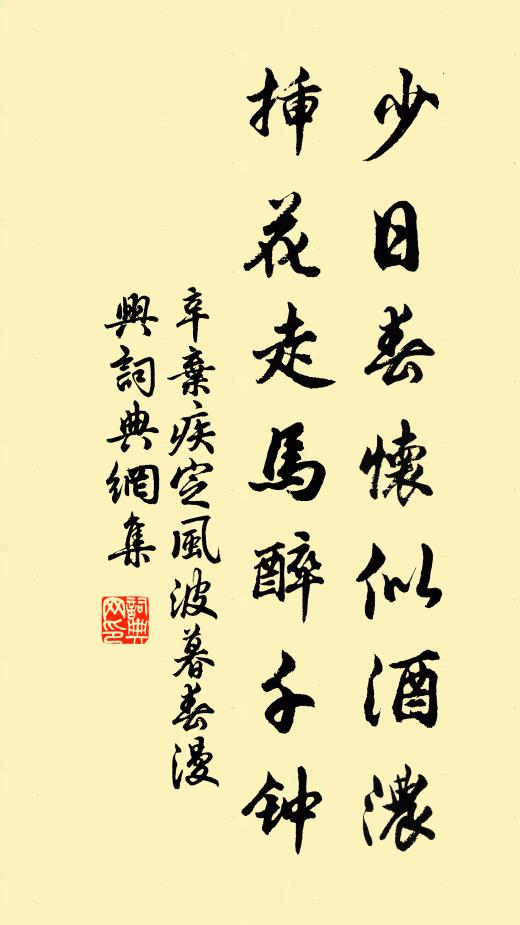 少日春懷似酒濃
插花走馬醉千钟
辛棄疾定風波暮春漫
興詞典網集
詞典
网印